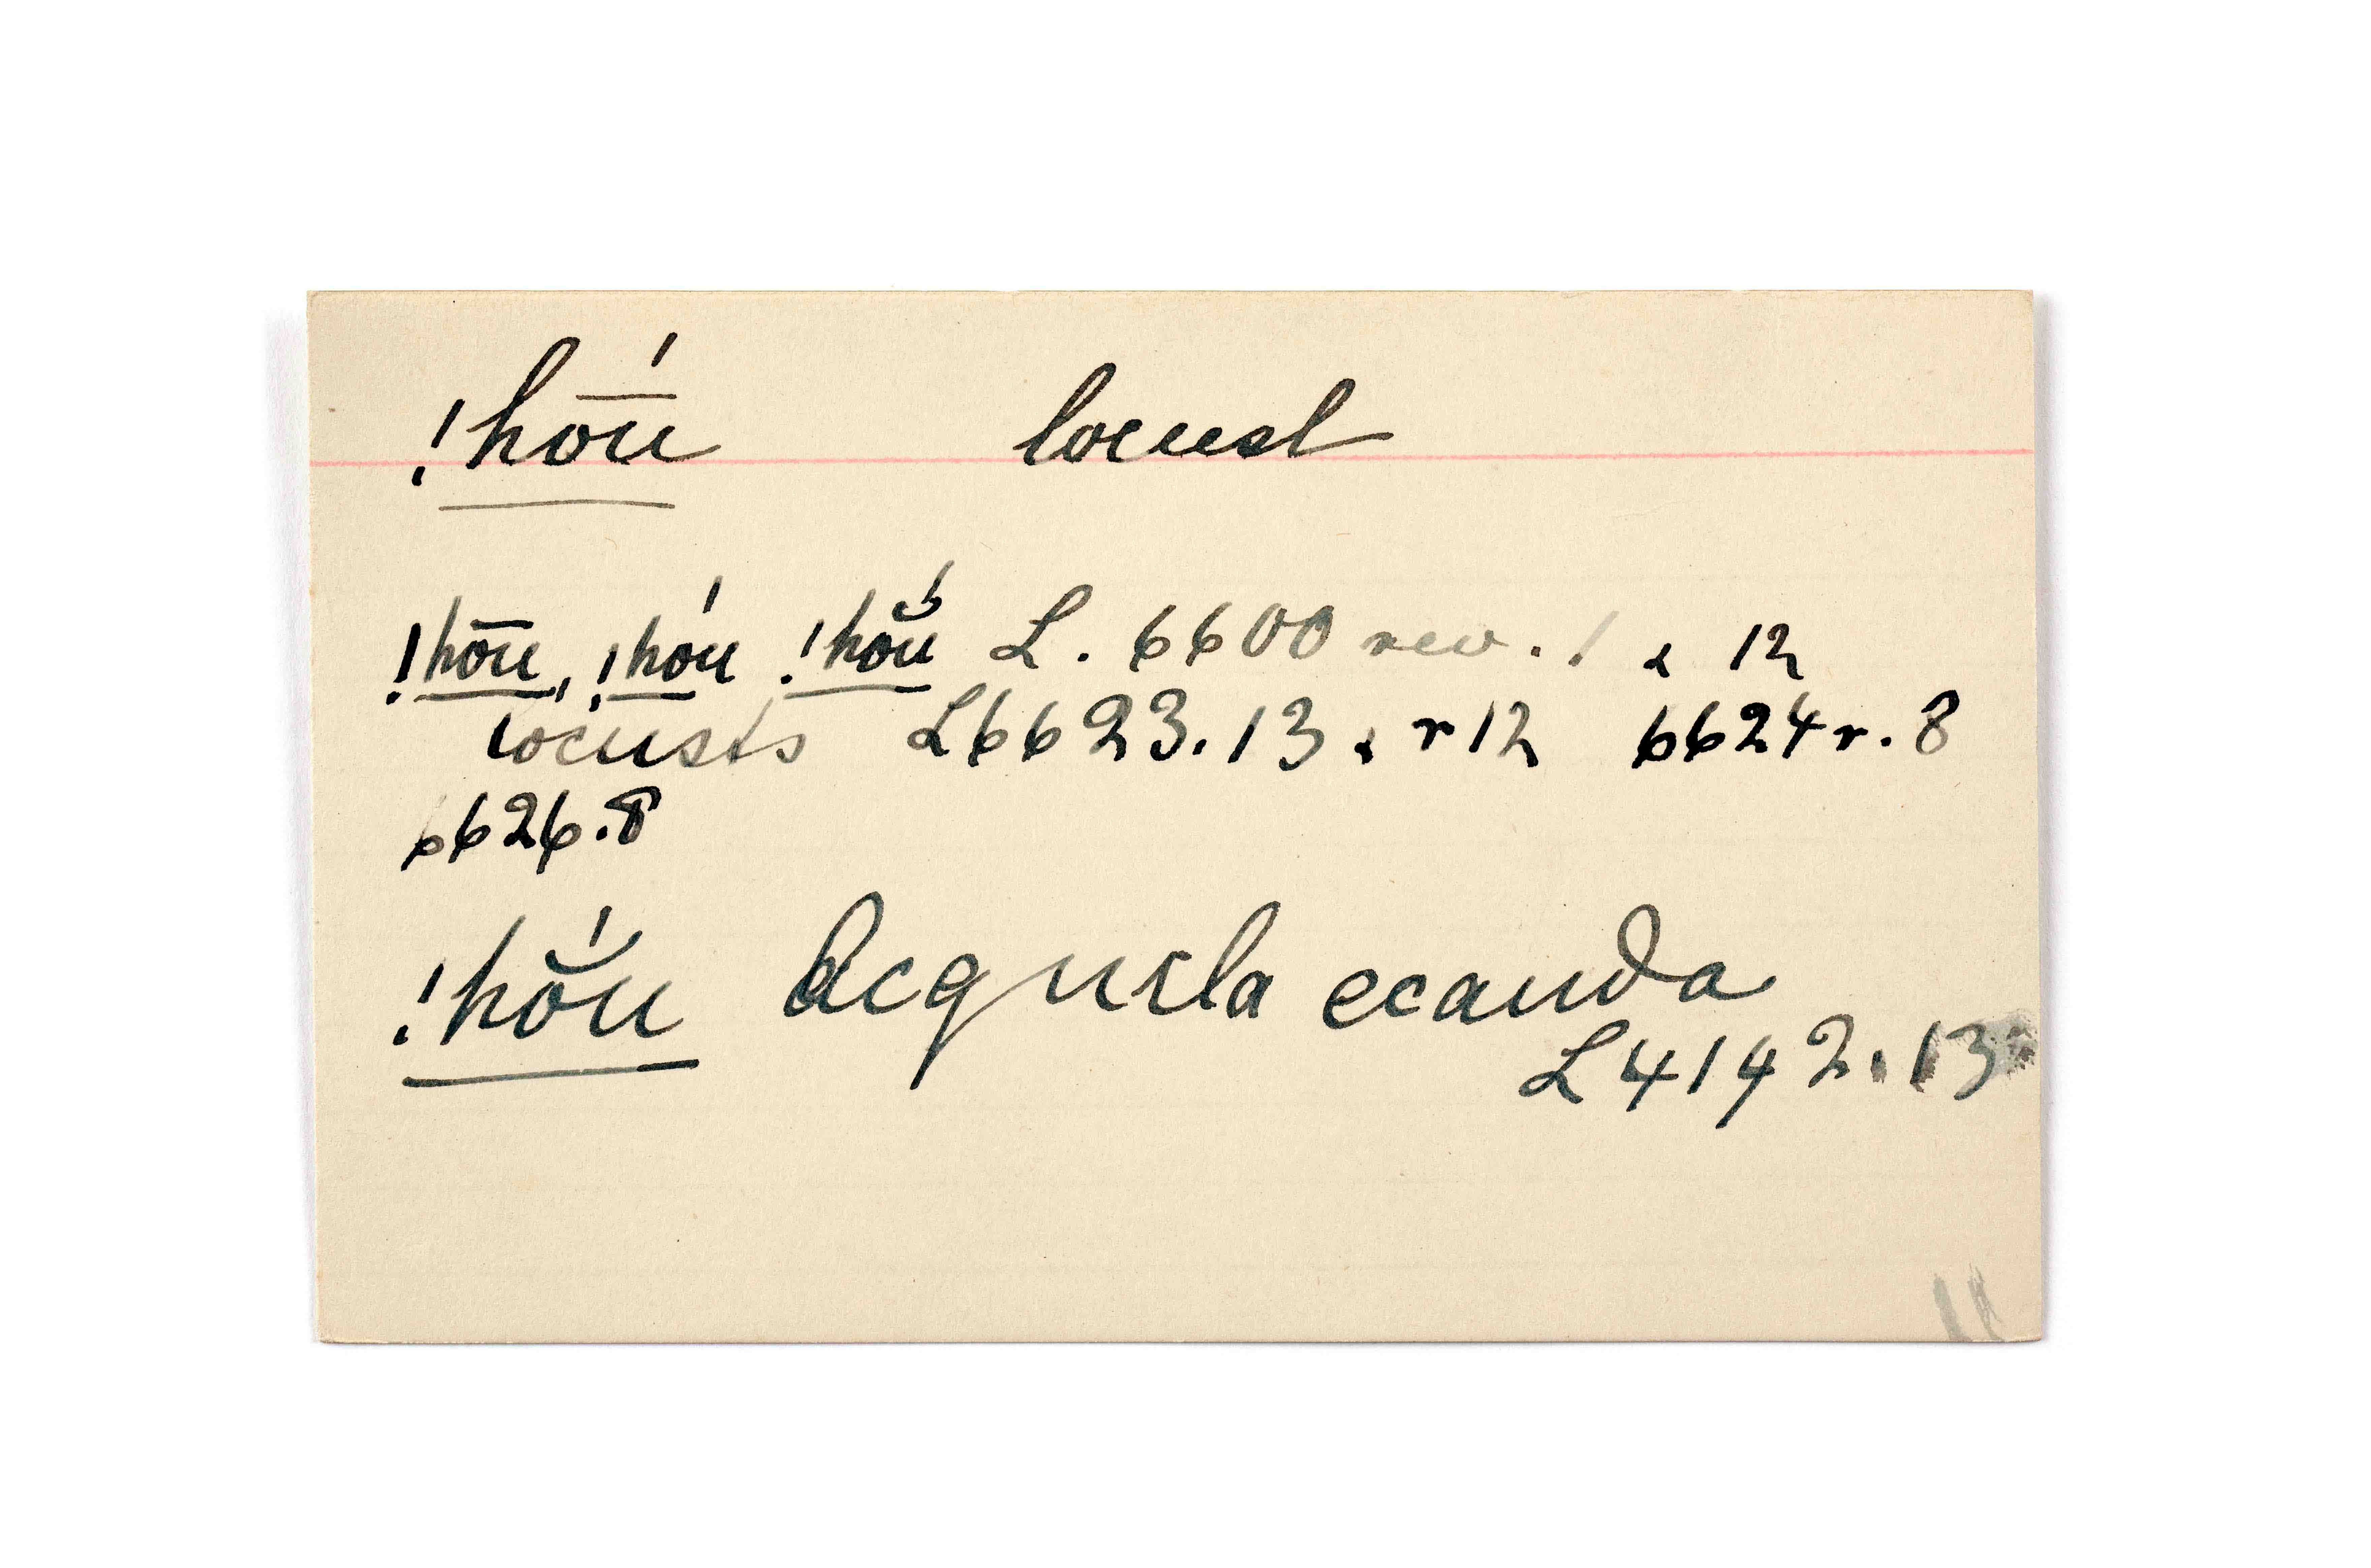 !hṓu locust
!hōu, !hóu !hŏ́u L. 6600 rev. 1 & 12
locusts L6623.13 & r12 6624r. 8
6626.8
!hŏ́u ecauda
L4142.13